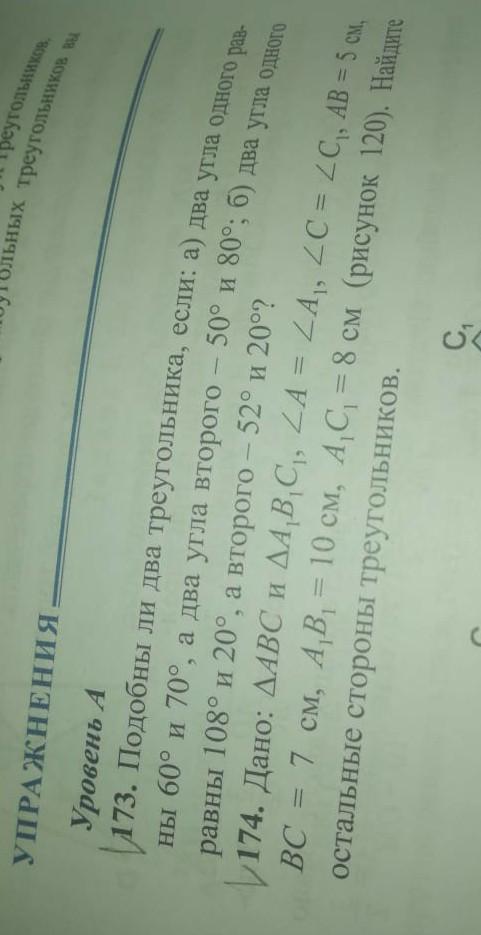 треугольников.
угольных треугольников вы
УПРАЖНЕНИЯ
Уровень А
173. Подобны ли два треугольника, если: а) два угла одного рав-
ны 60° и 70°, а два угла второго – 50° и 80°; б) два угла одного
равны 108° и 20°, а второго – 52° и 20°?
174. Дано: ΔABC и ΔA₁B₁C₁, ∠A = ∠A₁, ∠C = ∠C₁, AB = 5 см,
BC = 7 см, A₁B₁ = 10 см, A₁C₁ = 8 см (рисунок 120). Найдите
остальные стороны треугольников.
C₁